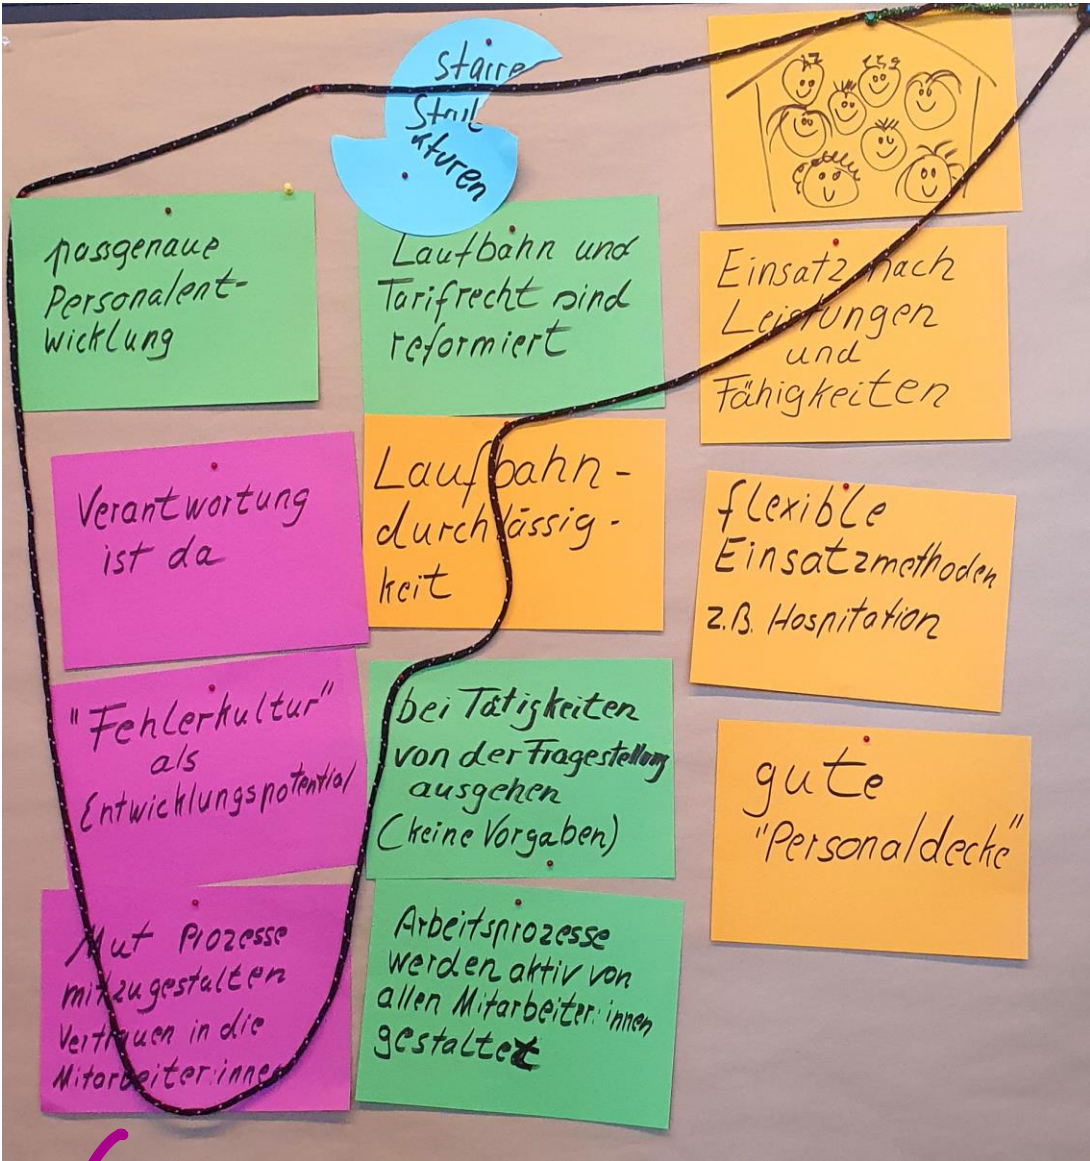 starre
Struk
turen
passgenaue
Personalent-
wicklung
Laufbahn und
Tarifrecht sind
reformiert
Einsatz nach
Leistungen
und
Fähigkeiten
Verantwortung
ist da
Laufbahn-
durchlässig-
keit
flexible
Einsatzmethoden
z.B. Hospitation
"Fehlerkultur"
als
Entwicklungspotential
bei Tätigkeiten
von der Fragestellung
ausgehen
(keine Vorgaben)
gute
"Personaldecke"
Mut Prozesse
mitzugestalten
Vertrauen in die
Mitarbeiter:innen
Arbeitsprozesse
werden aktiv von
allen Mitarbeiter:innen
gestaltet